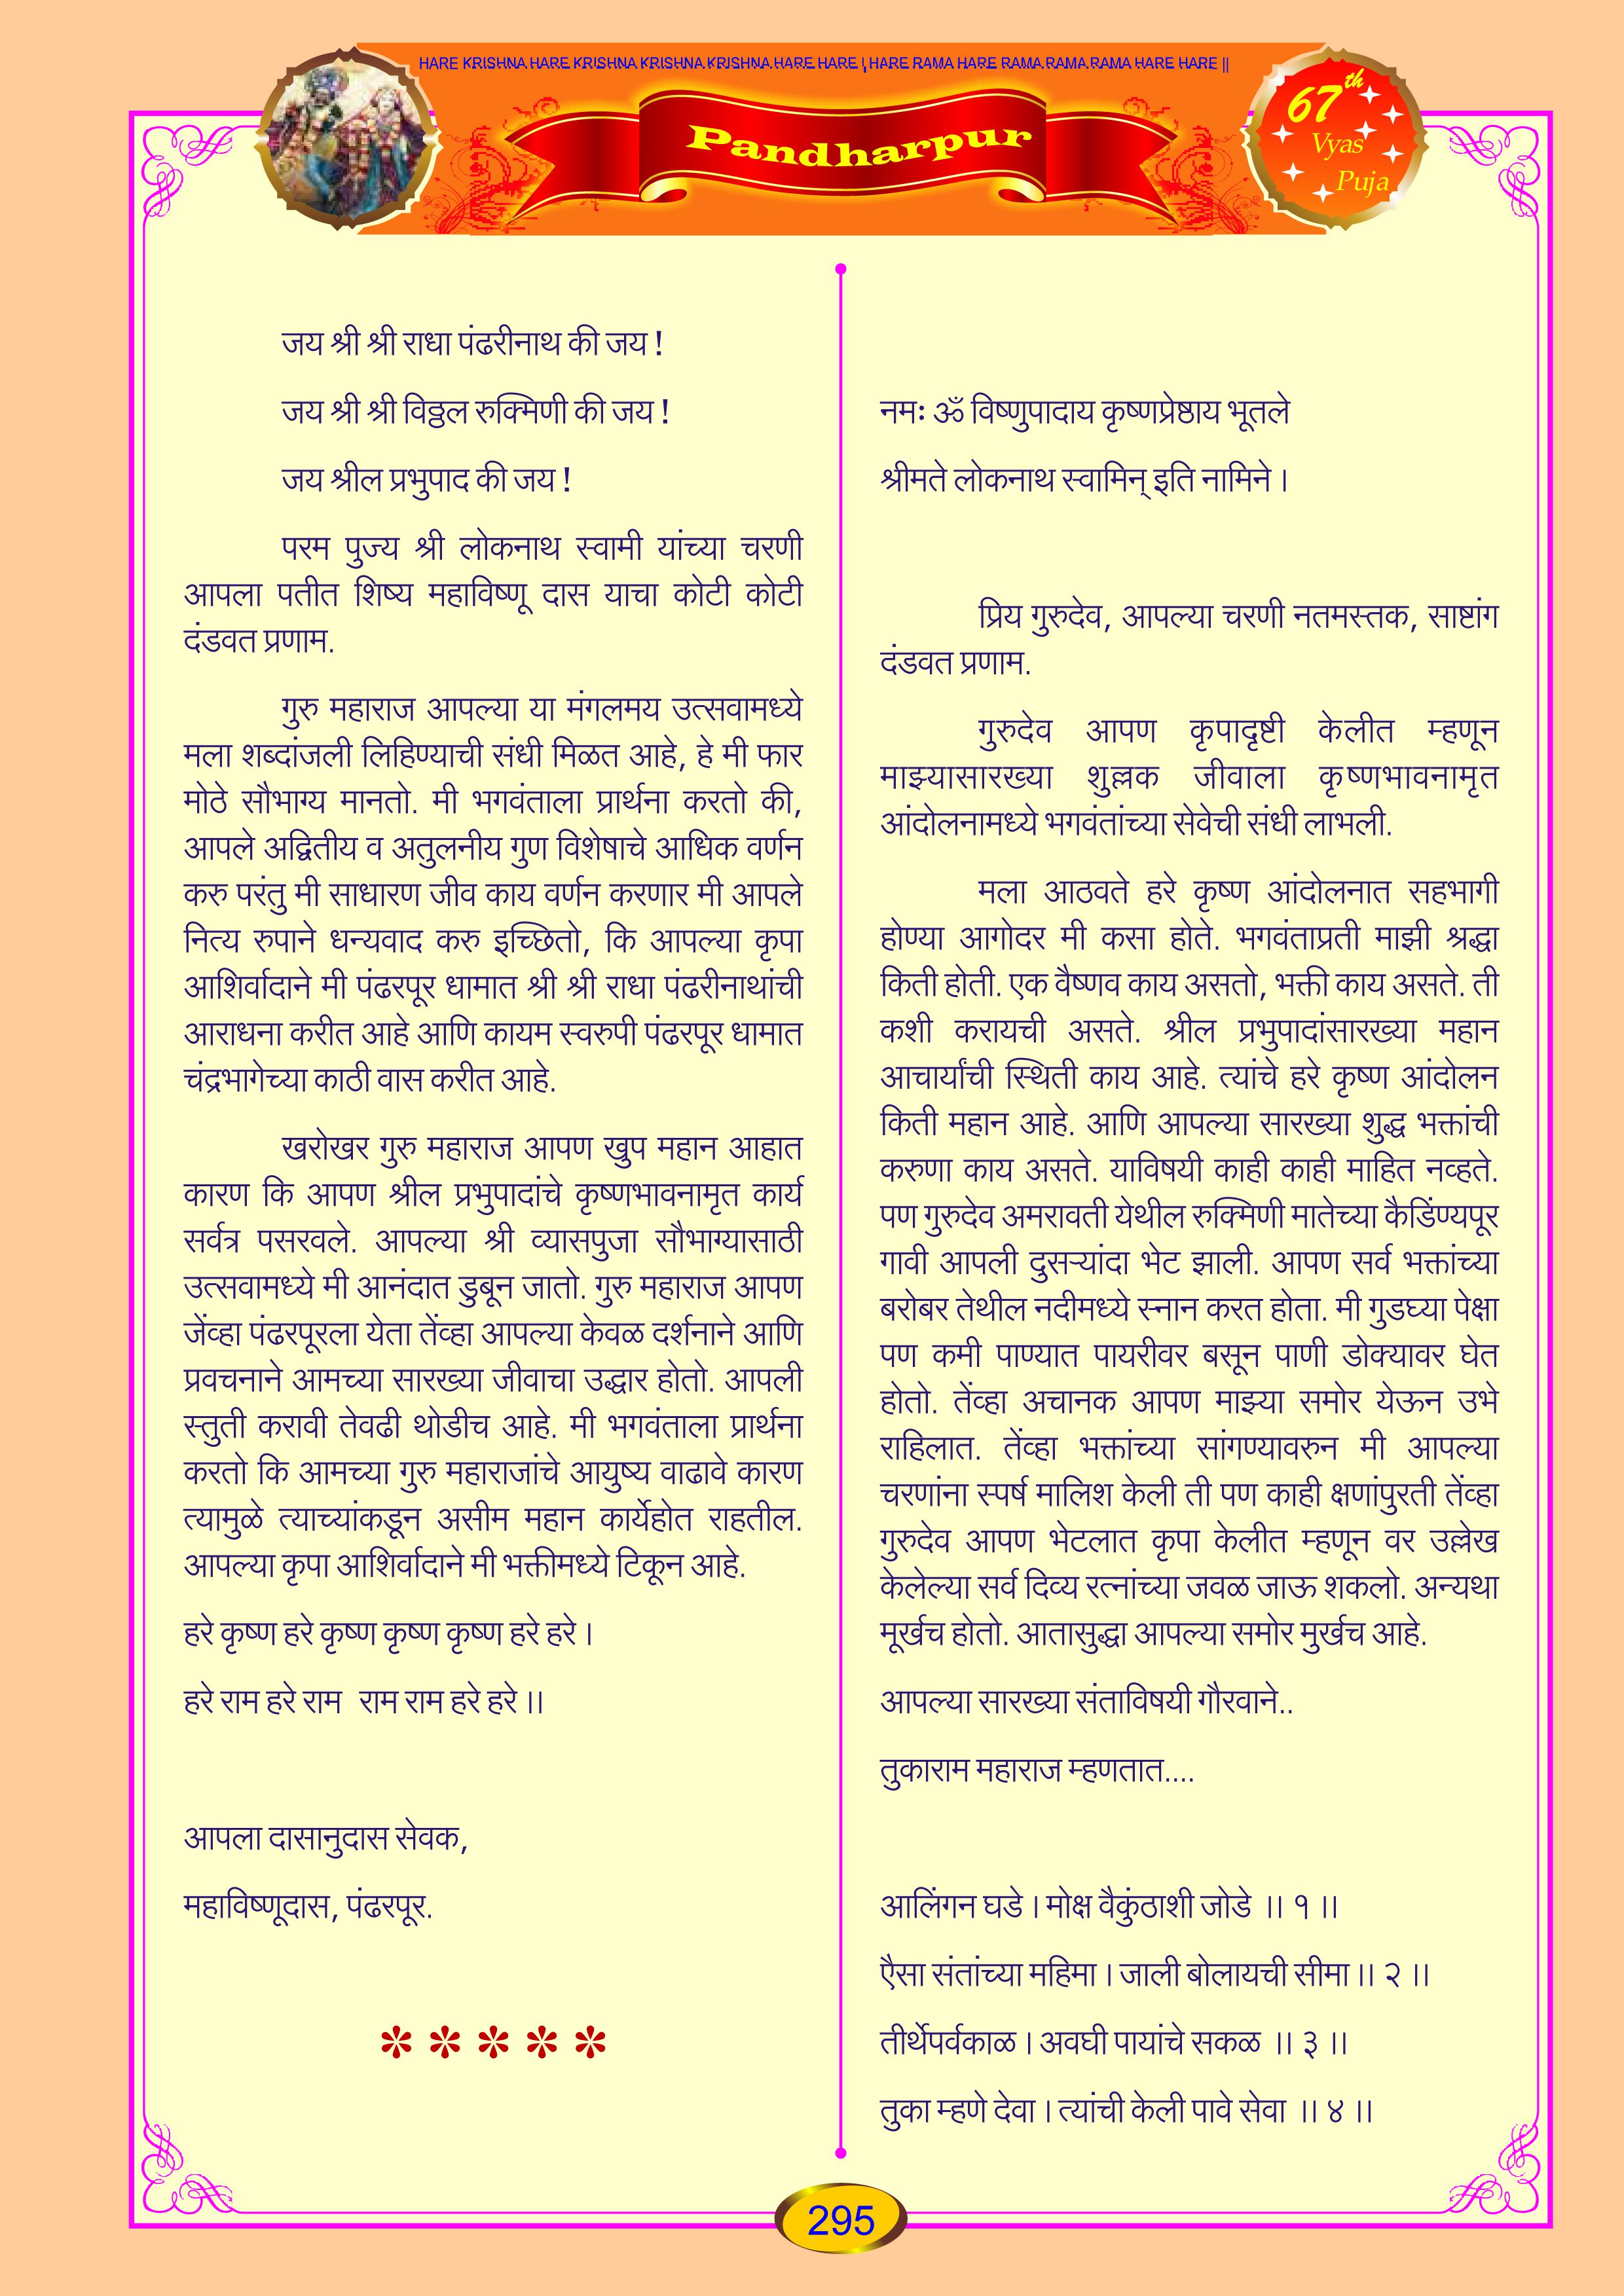 HARE KRISHNA HARE KRISHNA KRISHNA KRISHNA HARE HARE | HARE RAMA HARE RAMA RAMA RAMA HARE HARE ||
Pandharpur
67th
Vyas
Puja
जय श्री श्री राधा पंढरीनाथ की जय !
जय श्री श्री विठ्ठल रुक्मिणी की जय !
जय श्रील प्रभुपाद की जय !
परम पुज्य श्री लोकनाथ स्वामी यांच्या चरणी
आपला पतीत शिष्य महाविष्णू दास याचा कोटी कोटी
दंडवत प्रणाम.
गुरु महाराज आपल्या या मंगलमय उत्सवामध्ये
मला शब्दांजली लिहिण्याची संधी मिळत आहे, हे मी फार
मोठे सौभाग्य मानतो. मी भगवंताला प्रार्थना करतो की,
आपले अद्वितीय व अतुलनीय गुण विशेषाचे आधिक वर्णन
करु परंतु मी साधारण जीव काय वर्णन करणार मी आपले
नित्य रुपाने धन्यवाद करु इच्छितो, कि आपल्या कृपा
आशिर्वादाने मी पंढरपूर धामात श्री श्री राधा पंढरीनाथांची
आराधना करीत आहे आणि कायम स्वरुपी पंढरपूर धामात
चंद्रभागेच्या काठी वास करीत आहे.
खरोखर गुरु महाराज आपण खुप महान आहात
कारण कि आपण श्रील प्रभुपादांचे कृष्णभावनामृत कार्य
सर्वत्र पसरवले. आपल्या श्री व्यासपुजा सौभाग्यासाठी
उत्सवामध्ये मी आनंदात डुबून जातो. गुरु महाराज आपण
जेंव्हा पंढरपूरला येता तेंव्हा आपल्या केवळ दर्शनाने आणि
प्रवचनाने आमच्या सारख्या जीवाचा उद्धार होतो. आपली
स्तुती करावी तेवढी थोडीच आहे. मी भगवंताला प्रार्थना
करतो कि आमच्या गुरु महाराजांचे आयुष्य वाढावे कारण
त्यामुळे त्याच्यांकडून असीम महान कार्येहोत राहतील.
आपल्या कृपा आशिर्वादाने मी भक्तीमध्ये टिकून आहे.
हरे कृष्ण हरे कृष्ण कृष्ण कृष्ण हरे हरे ।
हरे राम हरे राम राम राम हरे हरे ।।
आपला दासानुदास सेवक,
महाविष्णूदास, पंढरपूर.
* * * * *
नमः ॐ विष्णुपादाय कृष्णप्रेष्ठाय भूतले
श्रीमते लोकनाथ स्वामिन् इति नामिने ।
प्रिय गुरुदेव, आपल्या चरणी नतमस्तक, साष्टांग
दंडवत प्रणाम.
गुरुदेव आपण कृपादृष्टी केलीत म्हणून
माझ्यासारख्या शुल्लक जीवाला कृष्णभावनामृत
आंदोलनामध्ये भगवंतांच्या सेवेची संधी लाभली.
मला आठवते हरे कृष्ण आंदोलनात सहभागी
होण्या आगोदर मी कसा होते. भगवंताप्रती माझी श्रद्धा
किती होती. एक वैष्णव काय असतो, भक्ती काय असते. ती
कशी करायची असते. श्रील प्रभुपादांसारख्या महान
आचार्यांची स्थिती काय आहे. त्यांचे हरे कृष्ण आंदोलन
किती महान आहे. आणि आपल्या सारख्या शुद्ध भक्तांची
करुणा काय असते. याविषयी काही काही माहित नव्हते.
पण गुरुदेव अमरावती येथील रुक्मिणी मातेच्या कैडिंण्यपूर
गावी आपली दुसऱ्यांदा भेट झाली. आपण सर्व भक्तांच्या
बरोबर तेथील नदीमध्ये स्नान करत होता. मी गुडघ्या पेक्षा
पण कमी पाण्यात पायरीवर बसून पाणी डोक्यावर घेत
होतो. तेंव्हा अचानक आपण माझ्या समोर येऊन उभे
राहिलात. तेंव्हा भक्तांच्या सांगण्यावरुन मी आपल्या
चरणांना स्पर्ष मालिश केली ती पण काही क्षणांपुरती तेंव्हा
गुरुदेव आपण भेटलात कृपा केलीत म्हणून वर उल्लेख
केलेल्या सर्व दिव्य रत्नांच्या जवळ जाऊ शकलो. अन्यथा
मूर्खच होतो. आतासुद्धा आपल्या समोर मुर्खच आहे.
आपल्या सारख्या संताविषयी गौरवाने..
तुकाराम महाराज म्हणतात....
आलिंगन घडे । मोक्ष वैकुंठाशी जोडे ।। १ ।।
एैसा संतांच्या महिमा । जाली बोलायची सीमा ।। २ ।।
तीर्थेपर्वकाळ । अवघी पायांचे सकळ ।। ३ ।।
तुका म्हणे देवा । त्यांची केली पावे सेवा ।। ४ ।।
295